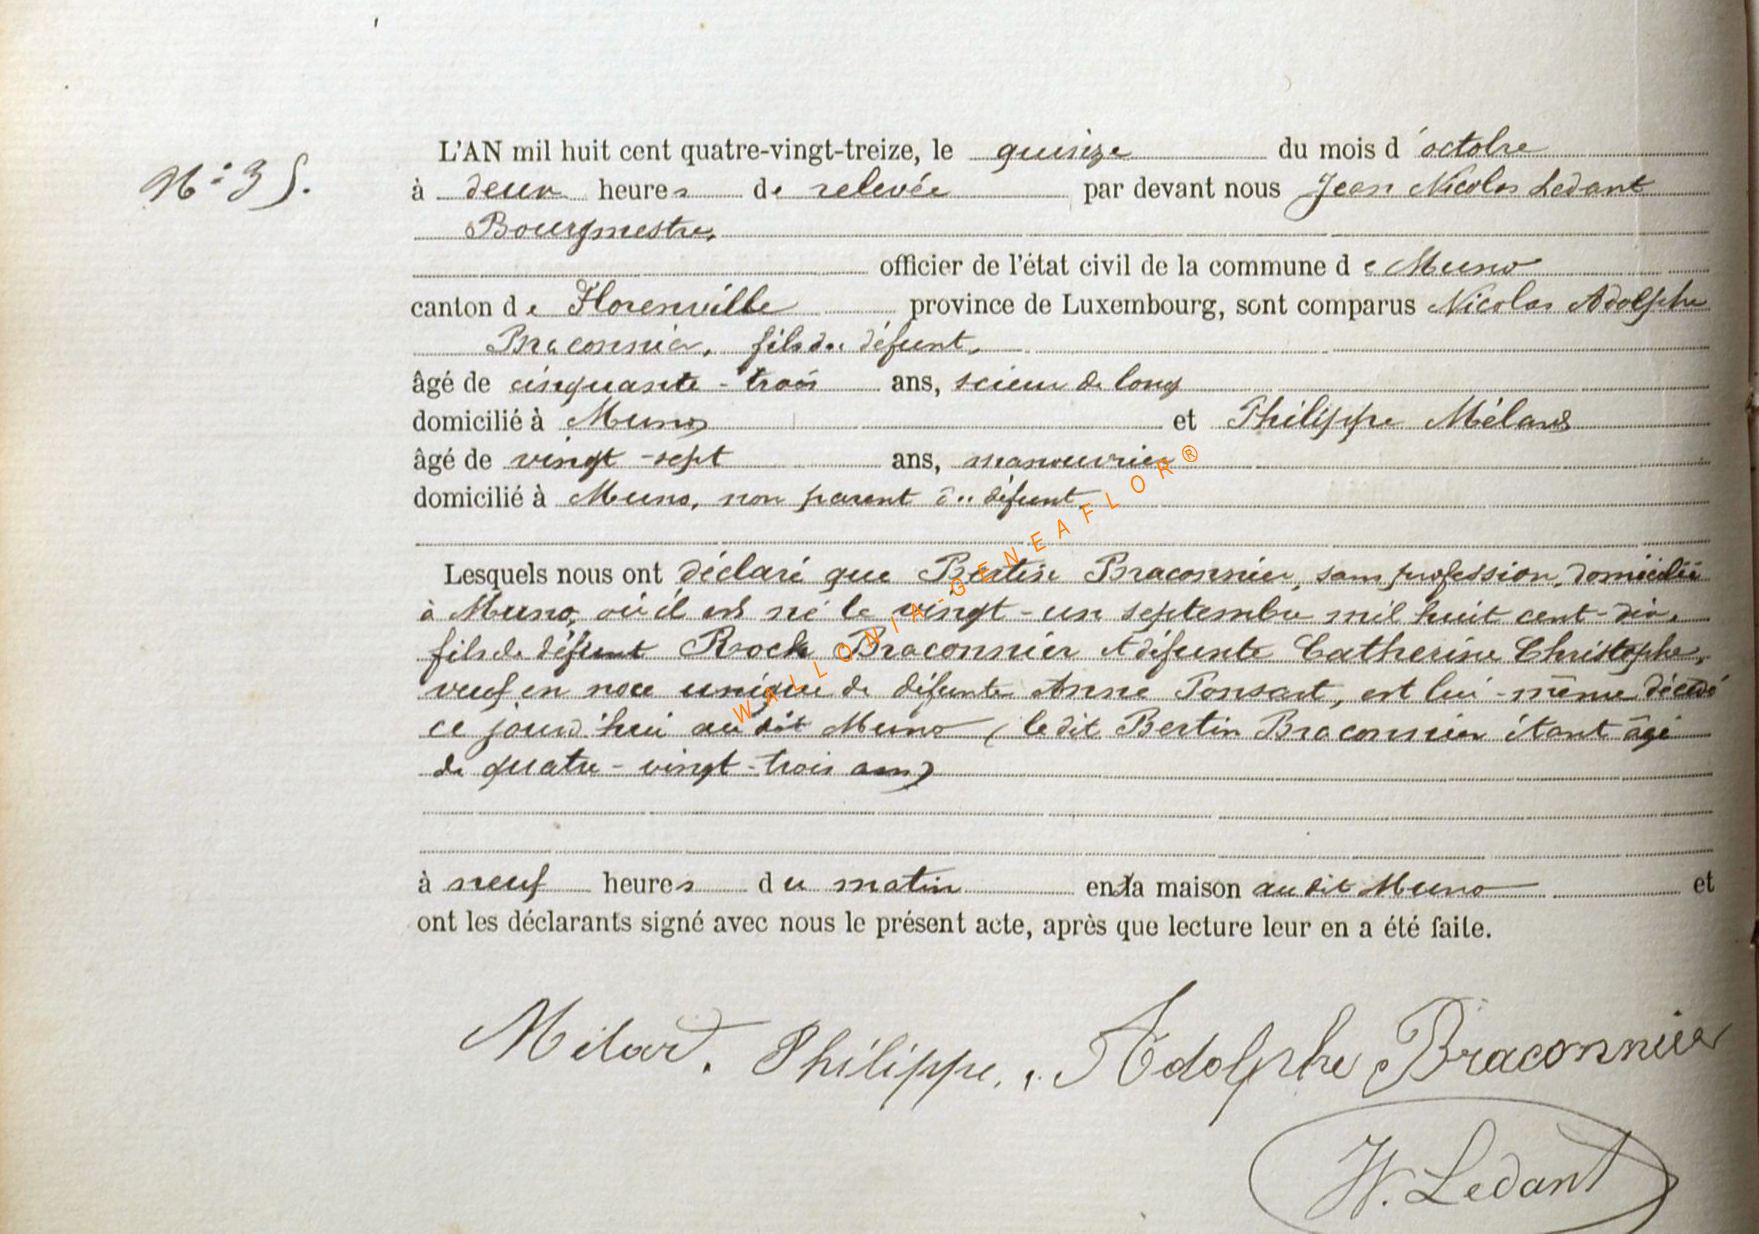 N° 35.
L'AN mil huit cent quatre-vingt-treize, le quinze du mois d'octobre
à deux heures de relevée par devant nous Jean Nicolas Ledant
Bourgmestre,
officier de l'état civil de la commune de Muno
canton de Florenville province de Luxembourg, sont comparus Nicolas Adolphe
Braconnier, fils du défunt,
âgé de cinquante-trois ans, scieur de long
domicilié à Muno et Philippe Mélard
âgé de vingt-sept ans, manouvrier
domicilié à Muno, non parent du défunt,
Lesquels nous ont déclaré que Bertin Braconnier, sans profession, domicilié
à Muno, où il est né le vingt-un septembre mil huit cent-dix,
fils de défunt Rock Braconnier et défunte Catherine Christophe,
veuf en noce unique de défunte Anne Ponsart, est lui-même décédé
ce jourd'hui au dit Muno (le dit Bertin Braconnier étant âgé
de quatre-vingt-trois ans)
à neuf heures du matin en la maison au dit Muno et
ont les déclarants signé avec nous le présent acte, après que lecture leur en a été faite.
Mélard. Philippe. Adolphe Braconnier
N. Ledant
WALLONIA-GENEAFLOR®